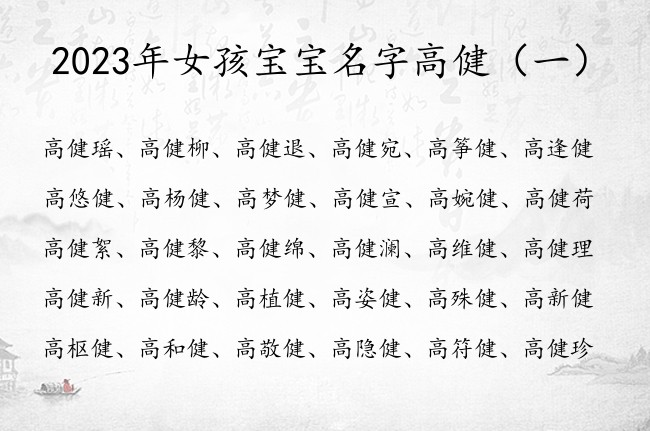 2023年女孩宝宝名字高健（一）
高健瑶、高健柳、高健退、高健宛、高筝健、高逢健
高悠健、高杨健、高梦健、高健宣、高婉健、高健荷
高健絮、高健黎、高健绵、高健澜、高维健、高健理
高健新、高健龄、高植健、高姿健、高殊健、高新健
高枢健、高和健、高敬健、高隐健、高符健、高健珍